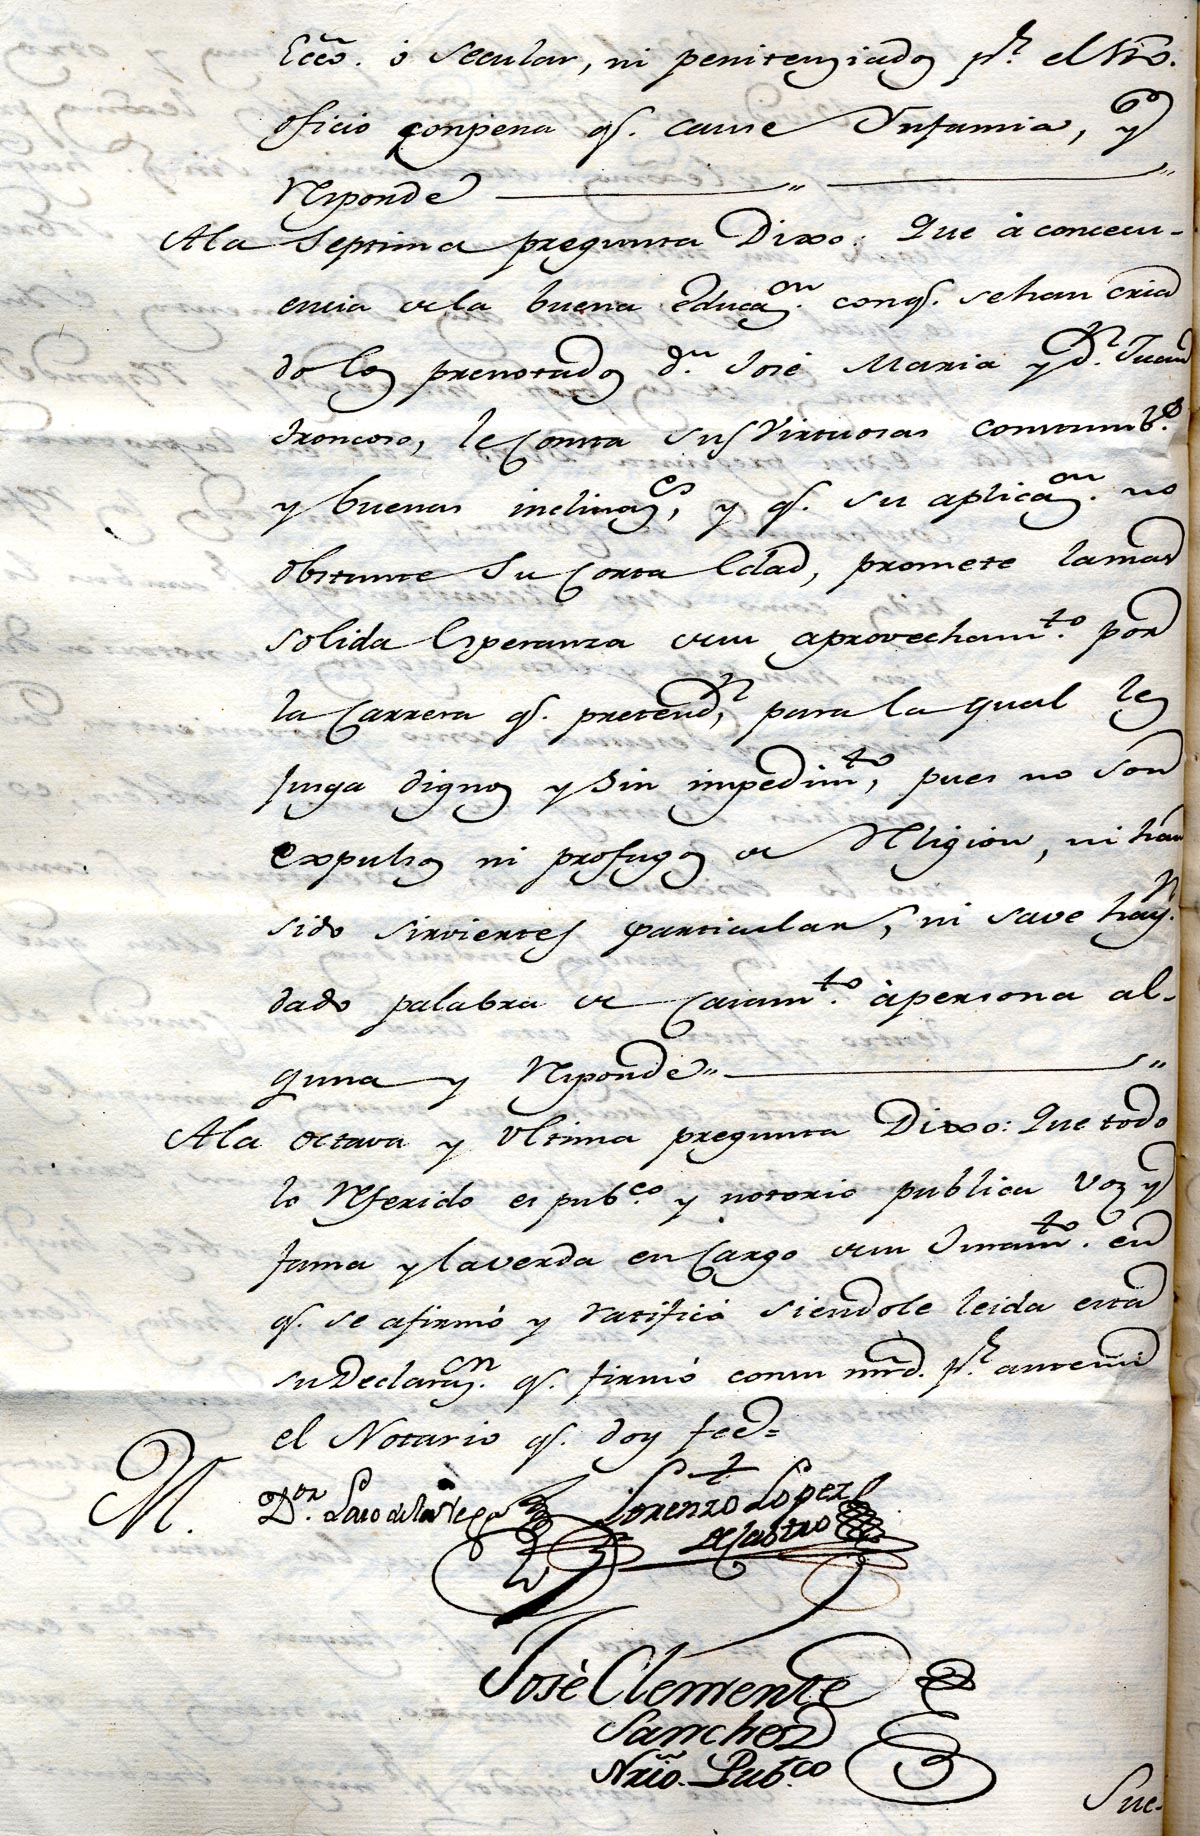 Ecco. ó Secular, ni penitenziados pr. el Sto.
oficio conpena qe. cause Ynfamia, y
responde
Ala Septima pregunta Dixo: Que à concecu-
encia de la buena educaon. conqe. sehan cria
do los prenotados dn. José Maria y dn. Juan
Troncoso, le Consta sus Virtuosas contumbs.
y buenas inclinaes, y qe. su aplicaon. no
obstante Su Corta Edad, promete lamas
solida Esperanza desu aprovechamto. por
la Carrera qe. pretenden, para la qual les
jusga dignos y Sin impedimto, pues no son
expulsos ni profugos de religion, ni han
sido sirvientes particulars, ni save hayn.
dado palabra de Casamto. àpersona al-
guna y responde
Ala octava y Ultima pregunta Dixo: Que todo
lo referido es pubco. y notorio publica Voz y
fama y laverda en Cargo desu Juramto. en
qe. se afirmó y ratificó siendole leida esta
suDeclaraon. qe. firmó consu mrd. pr. antemi
el Notario qe. doy fee=
M. Dor. Laso de la Vega Lorenzo Lopez
de Castro
José Clemente
Sanchez
Nrio. Pubco
Sue-